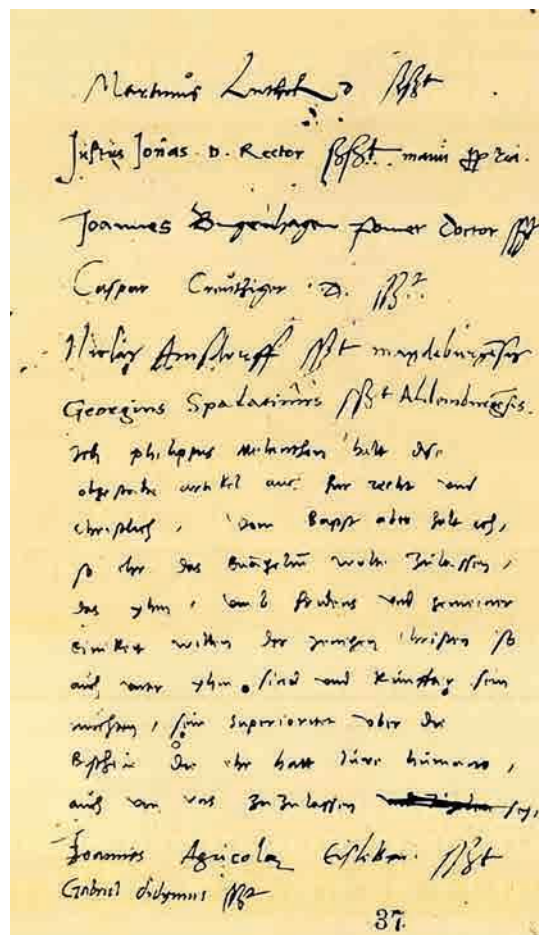 Martinus Luther D sszt
Justus Jonas. D. Rector sszt manu ppria.
Joannes Bugenhagen Pomer Doctor sszt
Caspar Creutziger D. sszt
Niclas Amsdorff sszt magdeburgensis
Georgius Spalatinus sszt Aldenburgensis.
Ich philippus Melanthon halt dise
obgestelte artikel auch fur recht und
christlich, vom Bapst aber halt ich,
so ehr das Euangeliu wolte zulassen,
das yhm, umb fridens und gemeiner
einikeit willen der jenigen Christen so
auch unter yhm sind und kunfftig sein
mochten, sein Superioritet uber die
Die ehr hatt Jure humano,
auch von uns zuzulassen sey,
Joannes Agricola Eisleben sszt
Gabriel didymus sszt
37.